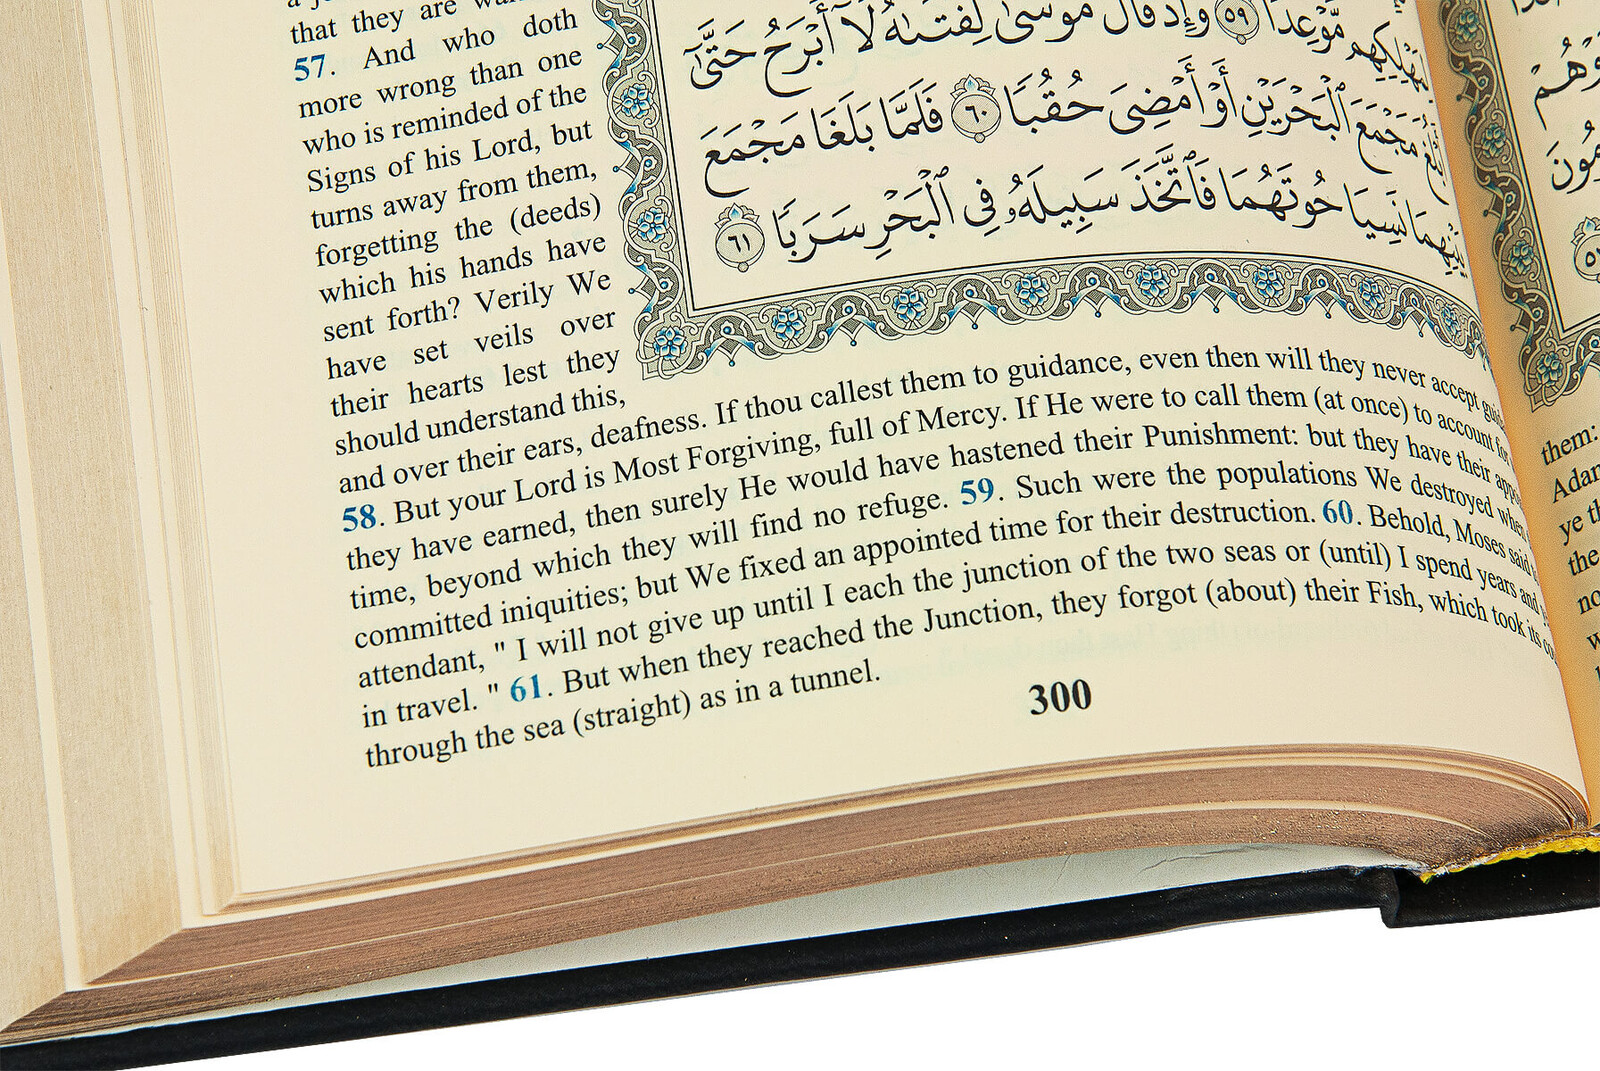 that they are
57. And who doth
more wrong than one
who is reminded of the
Signs of his Lord, but
turns away from them,
forgetting the (deeds)
which his hands have
sent forth? Verily We
have set veils over
their hearts lest they
should understand this,
and over their ears, deafness. If thou callest them to guidance, even then will they never accept
58. But your Lord is Most Forgiving, full of Mercy. If He were to call them (at once) to account for
they have earned, then surely He would have hastened their Punishment: but they have their
time, beyond which they will find no refuge. 59. Such were the populations We destroyed when
committed iniquities; but We fixed an appointed time for their destruction. 60. Behold, Moses said
attendant, " I will not give up until I each the junction of the two seas or (until) I spend years and
in travel. " 61. But when they reached the Junction, they forgot (about) their Fish, which took its
through the sea (straight) as in a tunnel.
300
لِمَهْلِكِهِم مَّوْعِدًا ٥٩ وَإِذْ قَالَ مُوسَىٰ لِفَتَىٰهُ لَآ أَبْرَحُ حَتَّىٰٓ
أَبْلُغَ مَجْمَعَ ٱلْبَحْرَيْنِ أَوْ أَمْضِىَ حُقُبًا ٦٠ فَلَمَّا بَلَغَا مَجْمَعَ
بَيْنِهِمَا نَسِيَا حُوتَهُمَا فَٱتَّخَذَ سَبِيلَهُۥ فِى ٱلْبَحْرِ سَرَبًا ٦١
them:
ye
the